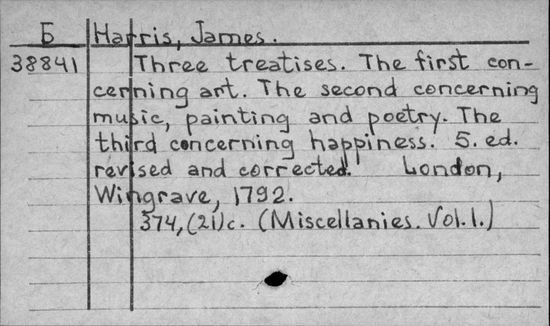 Б Harris, James.
38841 Three treatises. The first con-
cerning art. The second concerning
music, painting and poetry. The
third concerning happiness. 5. ed.
revised and corrected. London,
Wingrave, 1792.
374,(21)c. (Miscellanies. Vol. 1.)